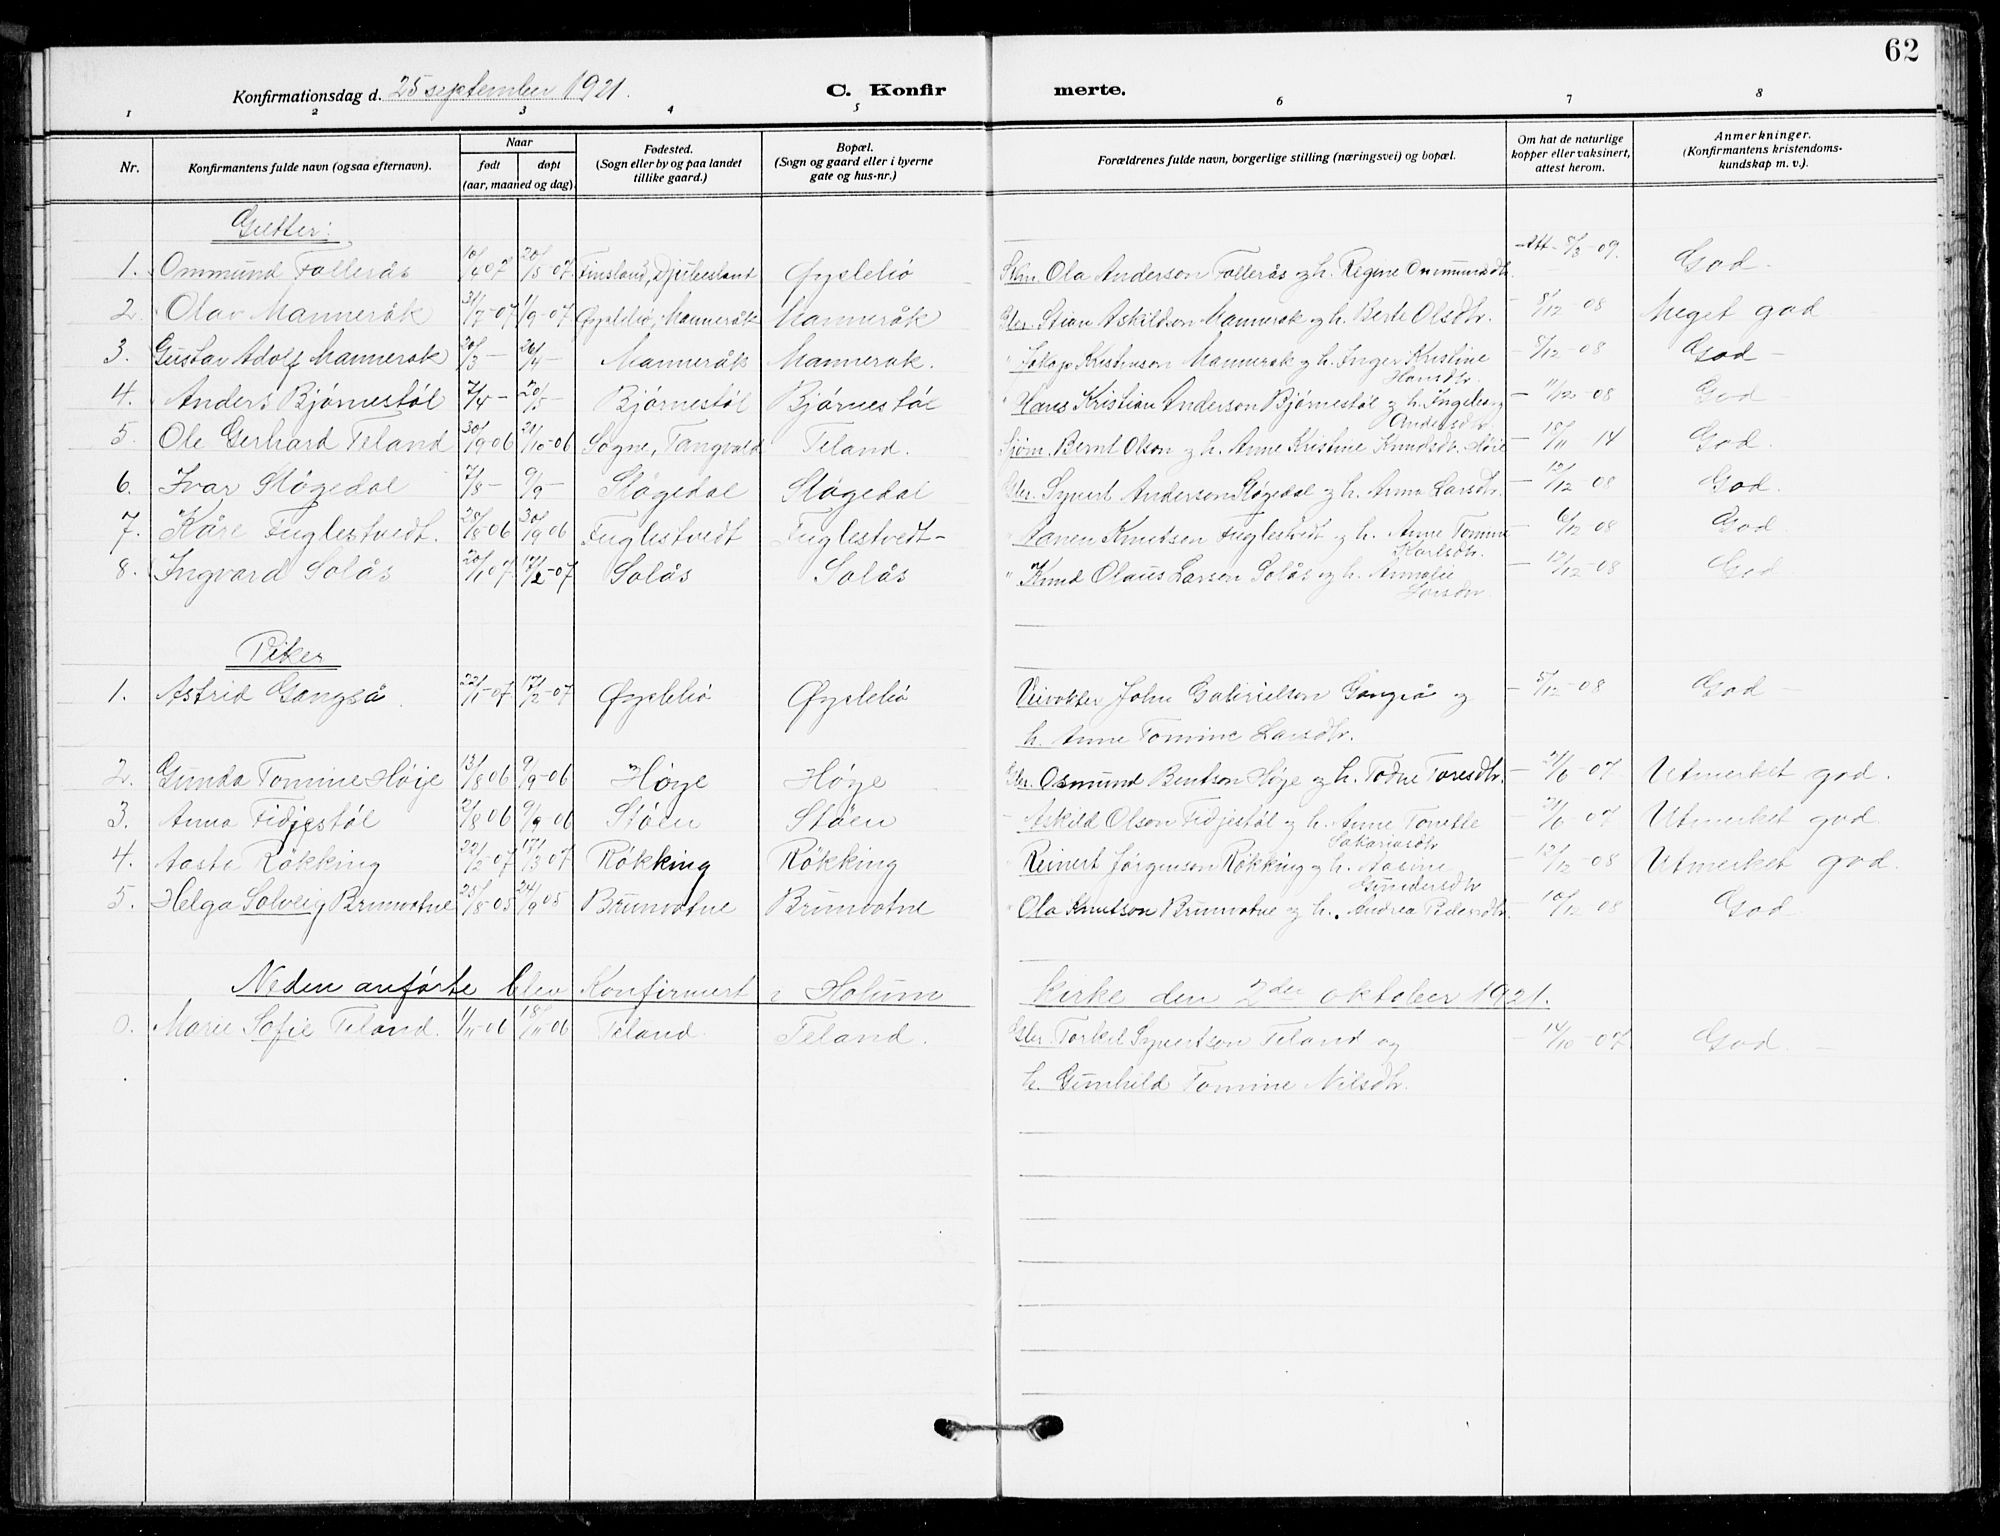 62
Konfirmationsdag d. 25 september 1921.
C. Konfir
merte.
1 2 3 4 5 6 7 8
Nr.
Konfirmantens fulde navn (ogsaa efternavn).
Naar
født døpt
(aar, maaned og dag).
Fødested.
(Sogn eller by og paa landet
tillike gaard.)
Bopæl.
(Sogn og gaard eller i byerne
gate og hus-nr.)
Forældrenes fulde navn, borgerlige stilling (næringsvei) og bopæl.
Om hat de naturlige
kopper eller vaksinert,
attest herom.
Anmerkninger.
(Konfirmantens kristendoms-
kundskap m. v.)
Gutter:
1. Ommund Follerås 10/4 07 20/5 07 Finsland, Øyslebø Ola Anderson Follerås og h. Regine Ommundsdtr. Att. 8/3-09. God
2. Olav Manneråk 31/7-07 1/9-07 Øyslebø, Manneråk Manneråk Gbr. Stian Askildson Mannerak og h. Berte Olsdtr. - 8/12-08 Meget god
3. Gustav Adolf Mannerak 20/3 - 26/4 - Manneråk Mannerak. " Jakop Kristenson Mannerak og h. Inger Kristine Hansdtr. - 8/12-08 God -
4. Anders Bjørnestøl 7/4 - 20/5 - Bjørnestøl Bjørnestøl " Hans Kristian Anderson Bjørnestøl og h. Ingeborg Andersdtr. - 11/12-08 God
5. Ole Gerhard Teland 30/9 06 21/10-06 Søgne, Tangvald Teland. Sjøm. Bernt Olson og h. Anne Kristine Knudsdtr. Høie - 18/11 14 God.
6. Ivar Støgedal 7/8 - 9/9 - Støgedal Støgedal Gbr. Syvert Anderson Støgedal og h. Anna Larsdtr. - 12/12-08 God.
7. Kåre Fuglestvedt. 28/8 06 30/9 06 Fuglestvedt Fuglestvedt - " Aanen Knutsen Fuglestvedt og h. Anne Tomine Karlsdtr. - 6/12-08 God
8. Ingvard Solås 20/1 07 17/2-07 Solås Solås " Knud Olaus Larsen Solås og h. Annalie - 12/12-08 God
Piker
1. Astrid Gangså. 22/1-07 17/2-07 Øyslebø Øyslebø Veivokter John Gabrielson Gangså og - 5/12-08 God -
h. Anne Tomine Larsdtr.
2. Gunda Tomine Høje 13/8 06 9/9-06 Høye Høye Gbr. Osmund Bentson Høje og h. Todne Toresdtr. - 21/6-07 Utmerket god.
3. Anna Fidjestøl 2/8 06 9/9 06 Støen Støen - Askild Olson Fidjestøl og h. Anne Tonette Sakariasdtr - 21/6-07 Utmerket god.
4. Aaste Røkking 22/2-07 17/3-07 Røkking Røkking " Reinert Jørgenson Røkking og h. Aasine Gundersdtr - 12/12-08 Utmerket god
5. Helga Solveig Brunvatne 25/8-05 24/9 05 Brunvatne Brunvatne " Ola Knutson Brunvatne og h. Andrea Pedersdtr. - 10/12 08 God
Neden anførte blev Konfirmert i Holum kirke den 2den oktober 1921.
0. Marie Sofie Teland. 1/11-06 18/11 06 Teland. Teland. Gbr. Torkel Syvertson Teland og - 14/10-07 God. -
h. Gunhild Tomine Nilsdtr.